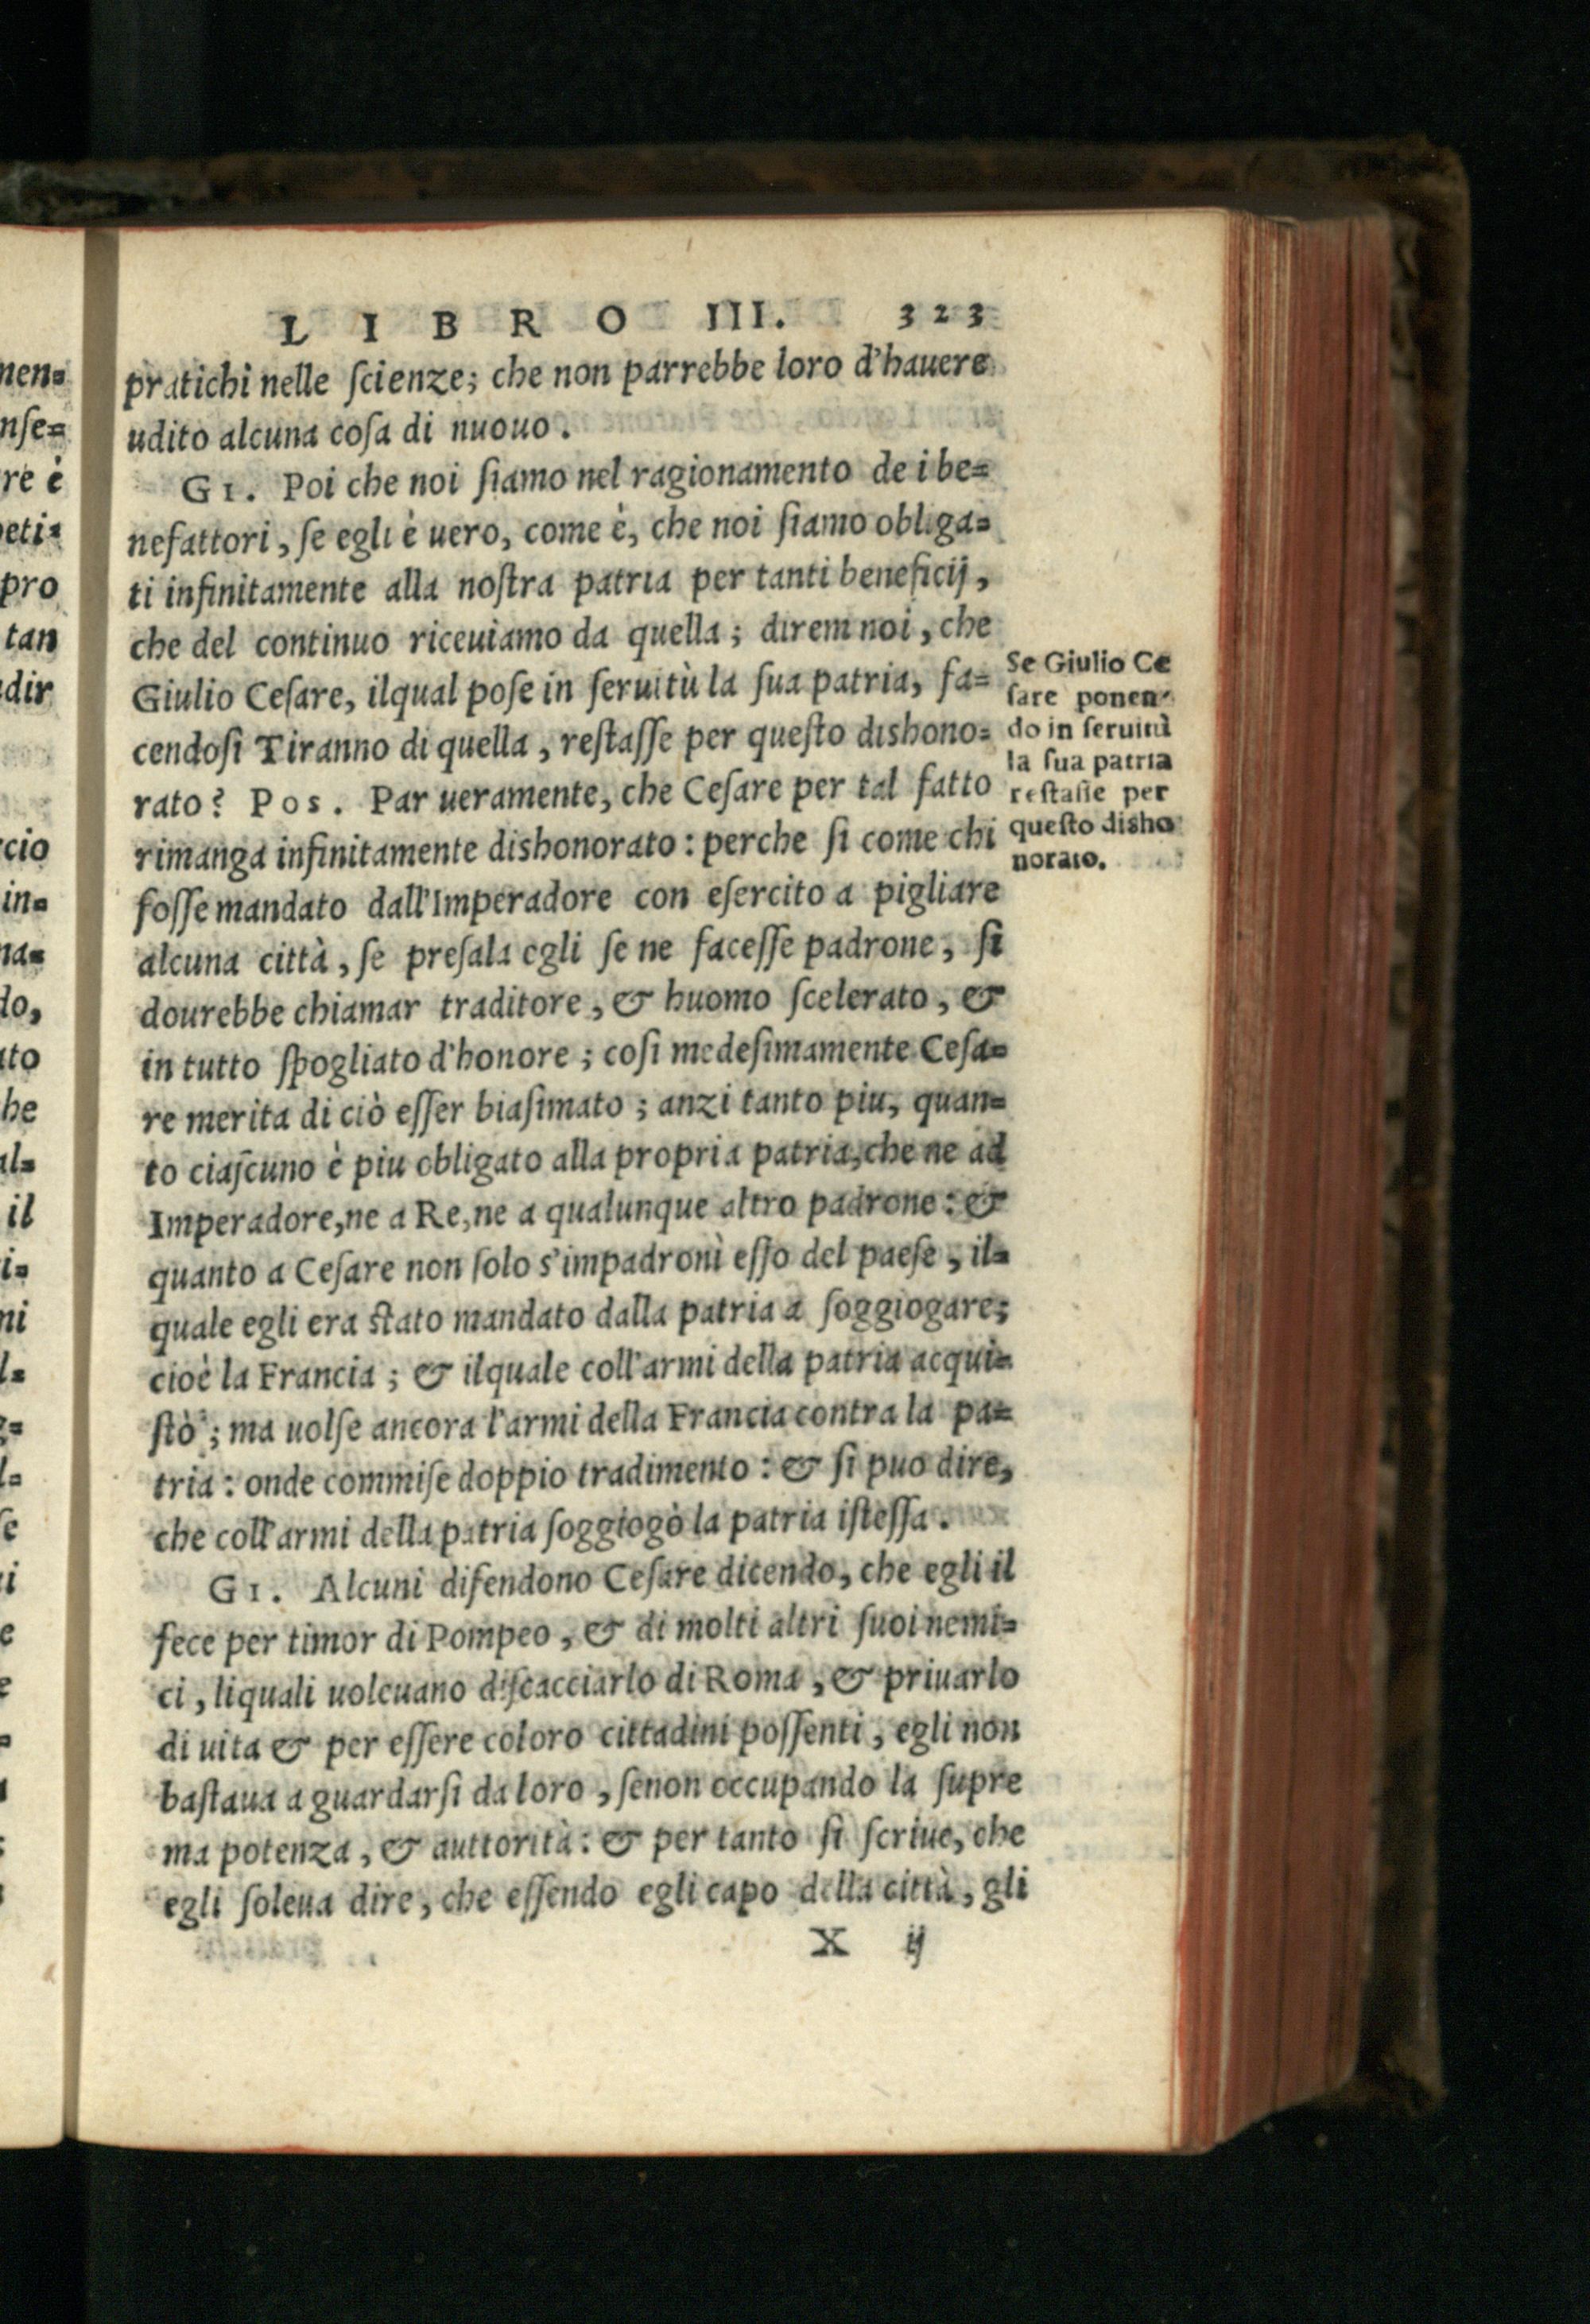 LIBRO III. 323
pratichi nelle ſcienze; che non parrebbe loro d'hauere
udito alcuna coſa di nuouo.
GI. Poi che noi ſiamo nel ragionamento de i be=
nefattori, ſe egli è uero, come è, che noi ſiamo obliga=
ti infinitamente alla noſtra patria per tanti beneficij,
che del continuo riceuiamo da quella; direm noi, che
Giulio Ceſare, ilqual poſe in ſeruitù la ſua patria, fa=
cendoſi Tiranno di quella, reſtaſſe per queſto dishono=
rato? Pos. Par ueramente, che Ceſare per tal fatto
rimanga infinitamente dishonorato: perche ſi come chi
foſſe mandato dall'Imperadore con eſercito a pigliare
alcuna città, ſe preſala egli ſe ne faceſſe padrone, ſi
dourebbe chiamar traditore, & huomo ſcelerato, &
in tutto ſpogliato d'honore; coſi medeſimamente Ceſa=
re merita di ciò eſſer biaſimato; anzi tanto piu, quan=
to ciaſcuno è piu obligato alla propria patria, che ne ad
Imperadore, ne a Re, ne a qualunque altro padrone: &
quanto a Ceſare non ſolo s'impadronì eſſo del paeſe, il=
quale egli era ſtato mandato dalla patria a ſoggiogare;
cioè la Francia; & ilquale coll'armi della patria acqui=
ſtò; ma uolſe ancora l'armi della Francia contra la pa=
tria: onde commiſe doppio tradimento: & ſi puo dire,
che coll'armi della patria ſoggiogò la patria iſteſſa.
GI. Alcuni difendono Ceſare dicendo, che egli il
fece per timor di Pompeo, & di molti altri ſuoi nemi=
ci, liquali uoleuano diſcacciarlo di Roma, & priuarlo
di uita & per eſſere coloro cittadini poſſenti, egli non
baſtaua a guardarſi da loro, ſenon occupando la ſupre
ma potenza, & auttorità: & per tanto ſi ſcriue, che
egli ſoleua dire, che eſſendo egli capo della città, gli
X ij
Se Giulio Ce
ſare ponen-
do in ſeruitù
la ſua patria
reſtaſſe per
queſto disho
norato.
nen=
nſe=
re è
peti=
pro
tan
dir
cio
in=
na=
do,
ato
he
al=
il
i=
ni
l=
g=
l=
ſe